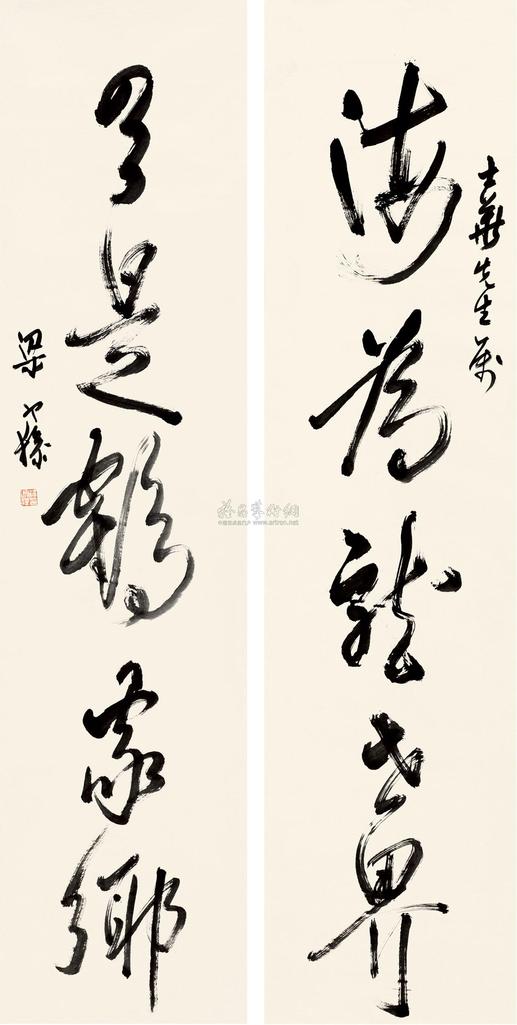 士華先生
海為龍世界
雲是鶴家鄉
梁寒操
雅昌藝術網
www.artron.net